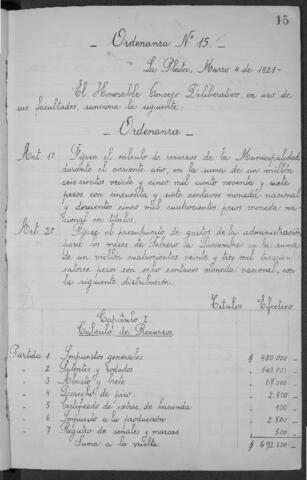 15
Ordenanza Nº 15
La Plata, Marzo 4 de 1921-
El Honorable Concejo Deliberativo, en uso de
sus facultades, sanciona la siguiente
Ordenanza
Art. 1º Fijase el cálculo de recursos de la Municipalidad
durante el corriente año, en la suma de un millón
seiscientos veinte y cinco mil ciento noventa y siete
pesos con cincuenta y siete centavos moneda nacional
y doscientos cinco mil cuatrocientos pesos moneda na
cional en títulos.
Art. 2º Fijase el presupuesto de gastos de la administración
para los meses de Febrero a Diciembre en la suma
de un millón cuatrocientos veinte y tres mil
catorce pesos con ocho centavos moneda nacional, con
la siguiente distribución:
Títulos Efectivo
Capítulo I
Cálculo de Recursos
Partida 1 Impuestos generales $ 480.000
" 2 Patentes y rodados 140.000
" 3 Abasto y
" 4 Derecho de piso 2.500
" 5 Certificado de hacienda 100
" 6 Impuesto a la producción 2.500
" 7 Registro de señales y marcas 500
Suma a la vuelta $ 692.600